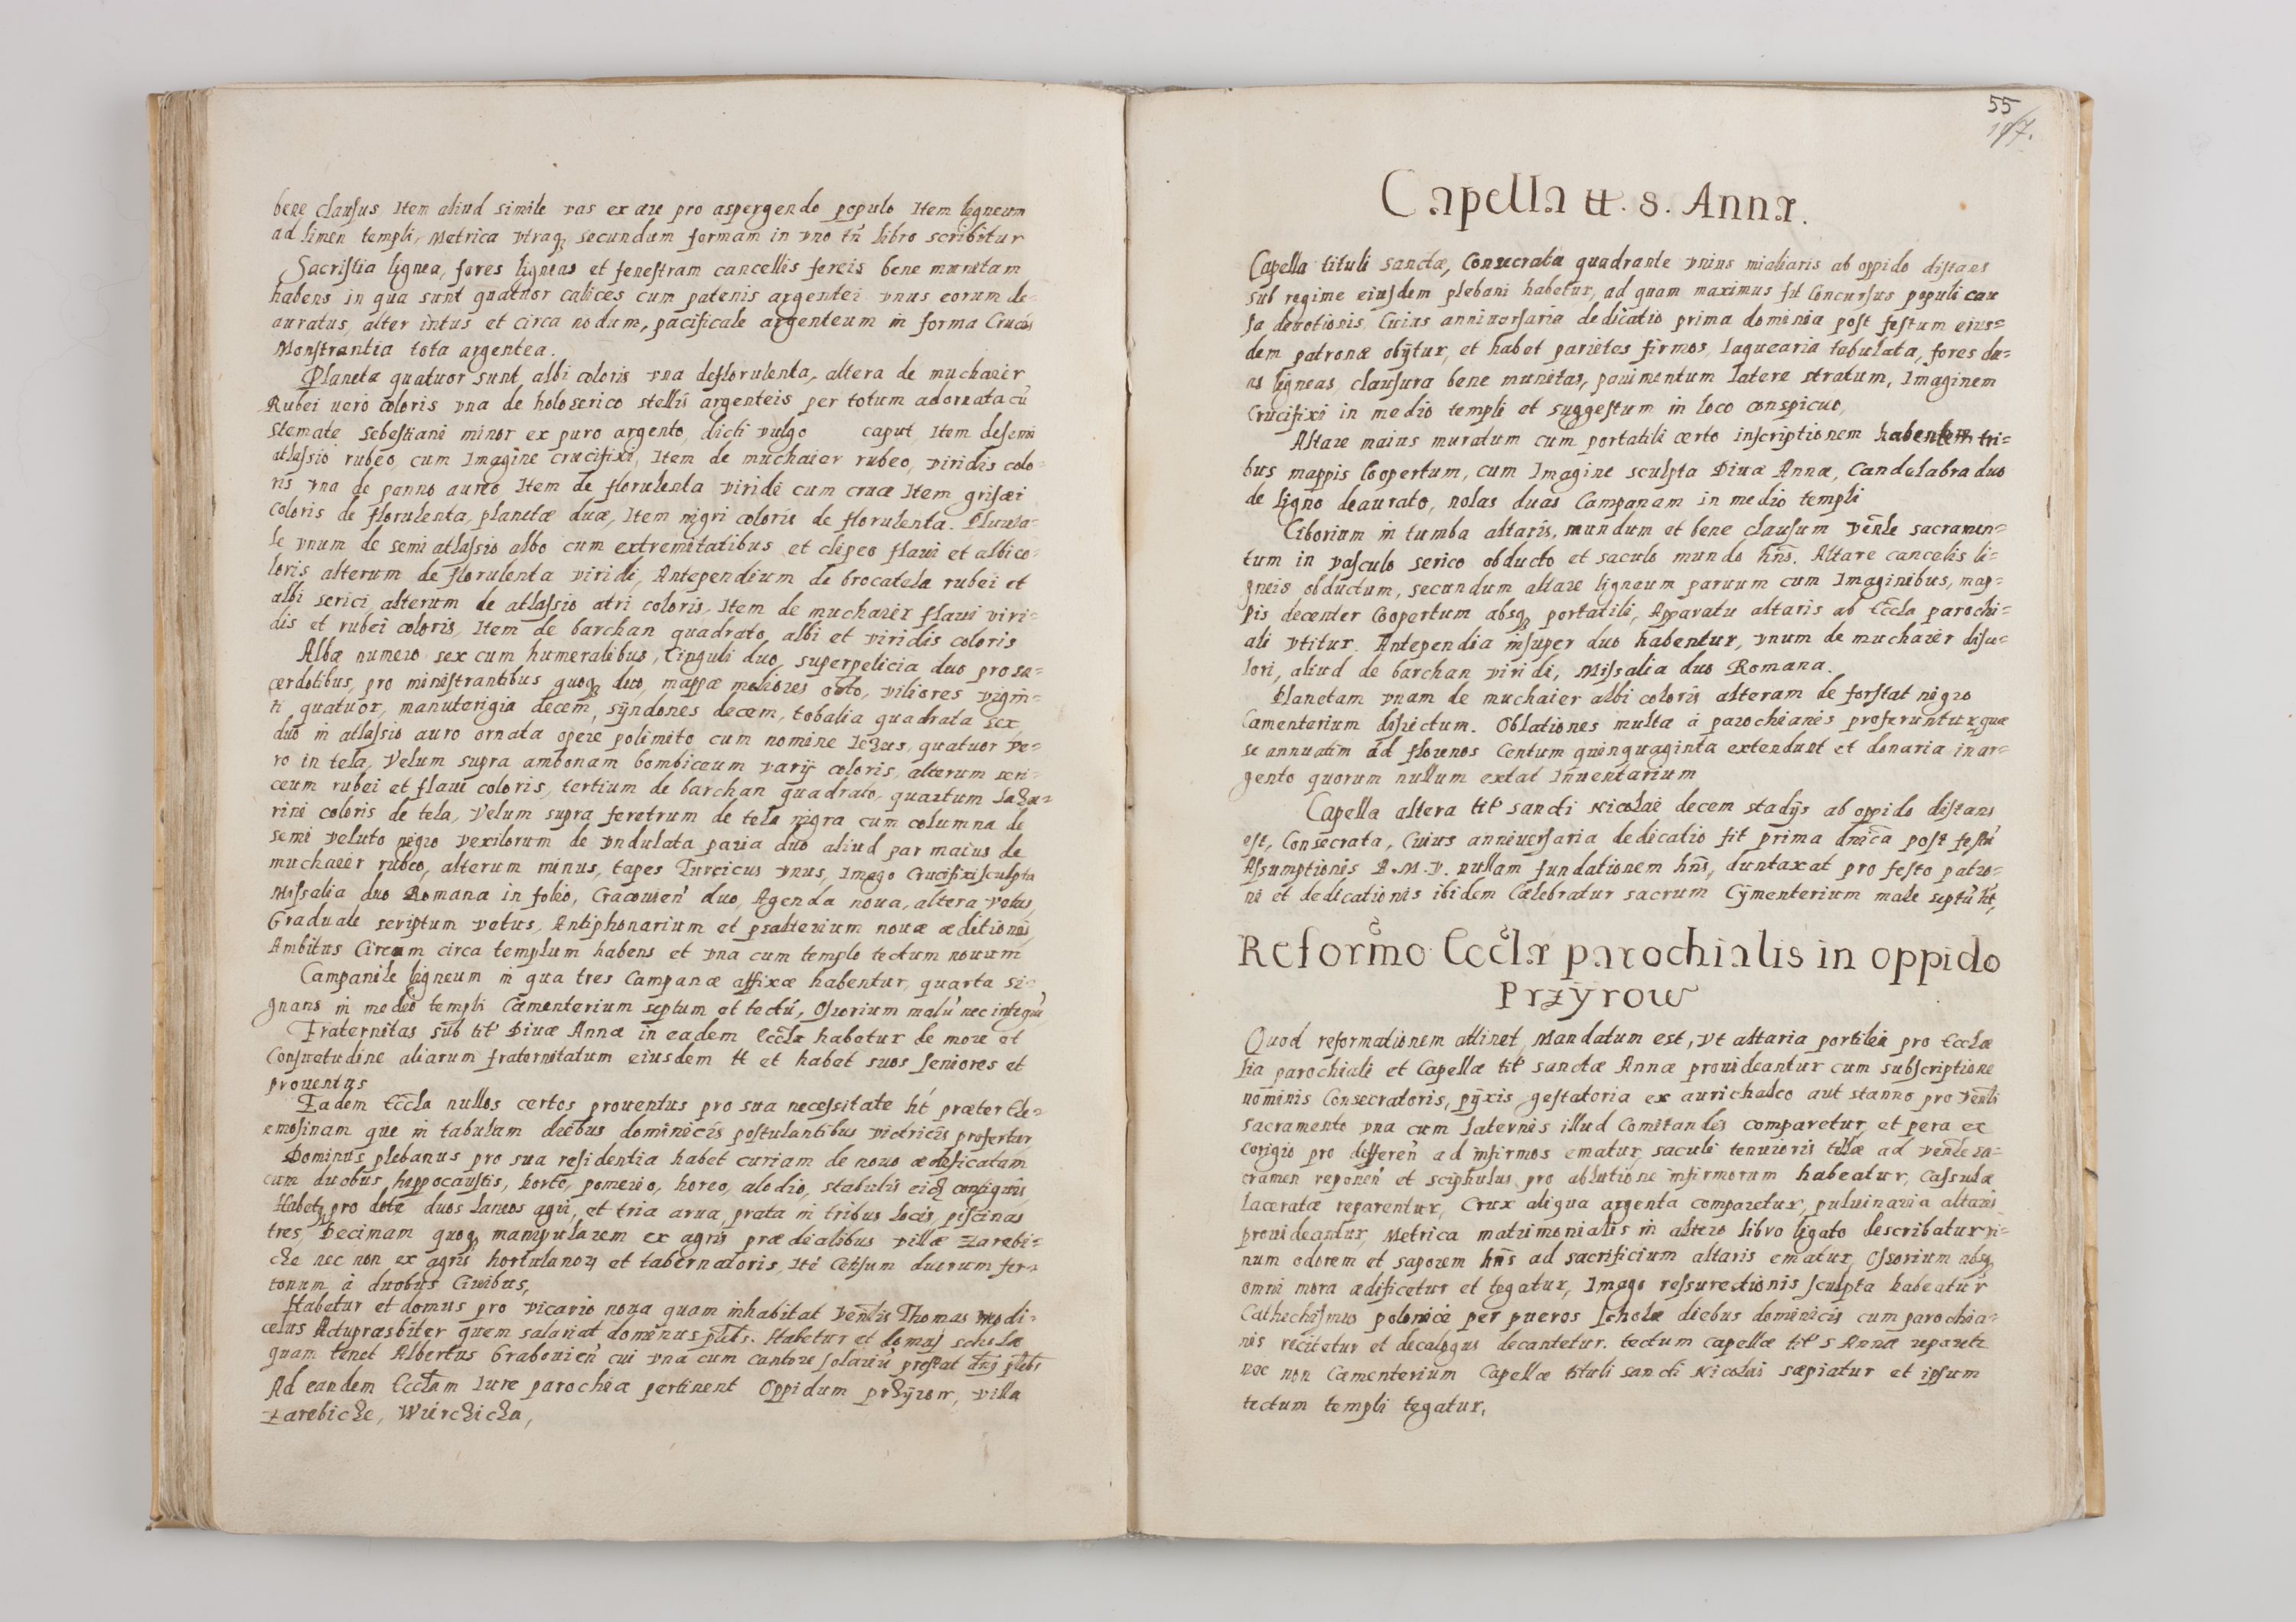 bene clausus Item aliud simile vas ex ære pro aspergendo populo Item ligneum
ad limen templi, Metrica vtraq; secundum formam in vno tñ libro scribitur
Sacristia lignea, fores ligneas et fenestram cancellis fereis bene munitam
habens in qua sunt quatuor calices cum patenis argentei vnus eorum de-
auratus, alter intus et circa nodum, pacificale argenteum in forma Crucis
Monstrantia tota argentea.
Planetæ quatuor sunt albi coloris vna deflorulenta, altera de muchaier
Rubei uero coloris vna de holoserico stellis argenteis per totum adornata cũ
stemate Sebestiani minor ex puro argento, dicti vulgo caput, Item desemi
atlassio rubeo cum Imagine crucifixi, Item de muchaier rubeo, viridis colo-
ris vna de panno aureo Item de florulenta viridi cum cruce Item grisei
coloris de florulenta, planetæ duæ, Item nigri coloris de florulenta. Pluuia-
le vnum de semi atlassio albo cum extremitatibus et clipeo flaui et albi co-
loris alterum de florulenta viridi, Antependium de brocatela rubei et
albi serici alterum de atlassio atri coloris, Item de muchaier flaui viri-
dis et rubei coloris, Item de barchan quadrato albi et viridis coloris
Albæ numero sex cum humeralibus, Cinguli duo, superpelicia duo pro sa-
cerdotibus, pro ministrantibus quoq; duo, mappæ meliores octo, viliores vigin-
ti quatuor, manuterigia decem, sÿndones decem, tobalia quadrata sex
duo in atlassio auro ornata opere polimito cum nomine Iezus, quatuor ve-
ro in tela, Velum supra ambonam bombiceum varÿ coloris, alterum seri-
ceum rubei et flaui coloris, tertium de barchan quadrato, quartum lazu-
rini coloris de tela, Velum supra feretrum de tela nigra cum columna de
semi veluto nigro vexilorum de vndulata paria duo aliud par maius de
muchaier rubeo, alterum minus, tapes Turcicus vnus, Imago Crucifixi sculpta
Missalia duo Romana in folio, Cracouien̄ duo, Agenda noua, altera vetus,
Graduale scriptum vetus, Antiphonarium et psalterium nouæ æditionis
Ambitus Circum circa templum habens et vna cum templo tectum nouum
Campanile ligneum in qua tres Campanæ affixæ habentur, quarta si-
gnans in medio templi Cæmenterium septum et tectũ, Ossorium malũ nec integrũ
Fraternitas sub titᵒ Diuæ Annæ in eadem Eccła habetur de more et
Consuetudine aliarum fraternitatum eiusdem tt et habet suos seniores et
prouentus
Eadem Eccła nullos certos prouentus pro sua necessitate ht́ præter Ele-
emosinam que in tabulam diebus dominicis postulantibus victricis profertur
Dominus plebanus pro sua residentia habet curiam de nouo ædificatam
cum duobus hyppocaustis, horto, pomerio, horeo, alodio, stabulis eidem contiguis
Habetq; pro dote duos laneos agri, et tria arua, prata in tribus locis, piscinas
tres, Decimam quoq; manipularem ex agris prædialibus villæ Zarebi-
cze nec non ex agris hortulanoꝝ et tabernatoris, Itẽ Censum duorum fer-
tonum à duobus Ciuibus,
Habetur et domus pro vicario noua quam inhabitat Venłis Thomas Modi-
celus Actupræsbiter quem salariat dominus płbs. Habetur et domus scholæ
quam tenet Albertus Grabouien̄ cui vna cum cantore solariũ prestat dñs plebs
Ad eandem Eccłam Iure parochiæ pertinent Oppidum przÿrow, villa
Zarebicze, Wierczicza,
55
Capella tt. S. Annæ.
Capella tituli sanctæ, Consecrata quadrante vnius miliaris ab oppido distans
sub regime eiusdem plebani habetur, ad quam maximus fit Concursus populi cau
sa deuotionis, Cuius anniuersaria dedicatio prima dominica post festum eius-
dem patronæ obÿtur, et habet parietes firmos, laquearia tabulata, fores du-
as ligneas clausura bene munitas, pauimentum latere stratum, Imaginem
Crucifixi in medio templi et suggestum in loco conspicuo,
Altare maius muratum cum portatili certo inscriptionem habentem tri-
bus mappis Coopertum, cum Imagine sculpta Diuæ Annæ, Candelabra duo
de ligno deaurato, nolas duas Campanam in medio templi
Ciborium in tumba altaris, mundum et bene clausum venłe sacramen-
tum in vasculo serico obducto et saculo mundo hñs. Altare cancelis li-
gneis obductum, secundum altare ligneum paruum cum Imaginibus, map-
pis decenter Coopertum absq; portatili, Apparatu altaris ab Eccła parochi-
ali vtitur. Antependia insuper duo habentur, vnum de muchaier disco-
lori, aliud de barchan viridi, Missalia duo Romana.
Planetam vnam de muchaier albi coloris alteram de forstat nigro
Cæmenterium disiectum. Oblationes multæ à parochianis proferuntur, quæ
se annuatim ad florenos Centum quinquaginta extendunt et donaria in ar-
gento quorum nullum extat Inuentarium
Capella altera titᵒ sancti Nicolai decem stadÿs ab oppido distans
est, Consecrata, Cuius anniuersaria dedicatio fit prima dnĩca post festũ
Assumptionis B.M.V. nullam fundationem hñs, duntaxat pro festo patro-
ni et dedicationis ibidem Cælebratur sacrum Cÿmenterium male septũ ht́,
Reformo Ecclæ parochialis in oppido
Przÿrow
Quod reformationem attinet, Mandatum est, vt altaria portilia pro Eccłæ
sia parochiali et Capellæ titᵒ sanctæ Annæ prouideantur cum subscriptione
nominis Consecratoris, pÿxis gestatoria ex aurichalco aut stanno pro Venłi
sacramento vna cum laternis illud Comitandis comparetur, et pera ex
corigio pro differen̄ ad infirmos ematur, saculi tenuioris telæ ad venłe sa-
cramen reponen̄ et sciphulus pro ablutione infirmorum habeatur, Casulæ
laceratæ reparentur, Crux aliqua argenta comparetur, puluinaria altaris
prouideantur, Metrica matrimonialis in altero libro ligato describatur, vi-
num odorem et saporem hñs ad sacrificium altaris ematur, Ossorium absq;
omni mora ædificetur et tegatur, Imago ressurectionis sculpta habeatur
Cathechismus polonicè per pueros scholæ diebus dominicis cum parochia-
nis recitetur et decalogus decantetur. tectum capellæ titᵒ S Annæ reparetr
nec non Cæmenterium Capellæ tituli sancti Nicolai sæpiatur et ipsum
tectum templi tegatur,